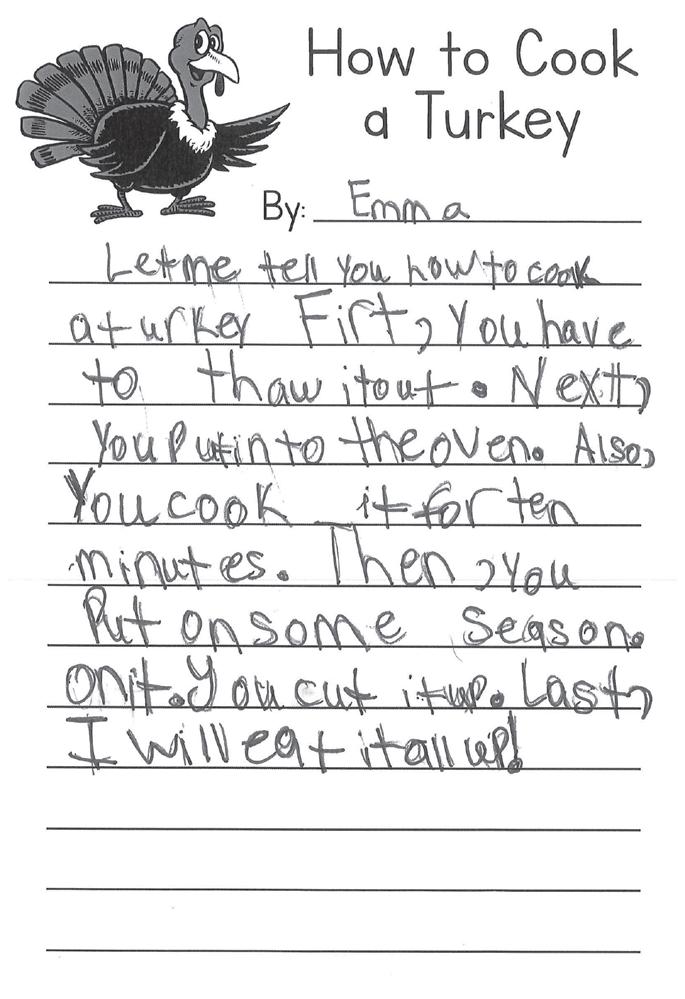 How to Cook
a Turkey
By: Emma
Let me tell you how to cook
a turkey Firt, you have
to thaw it out. Next,
You Put in to the oven. Also,
You cook it for ten
minutes. Then, you
Put on some season.
on it. You cut it up. Last,
I will eat it all up!